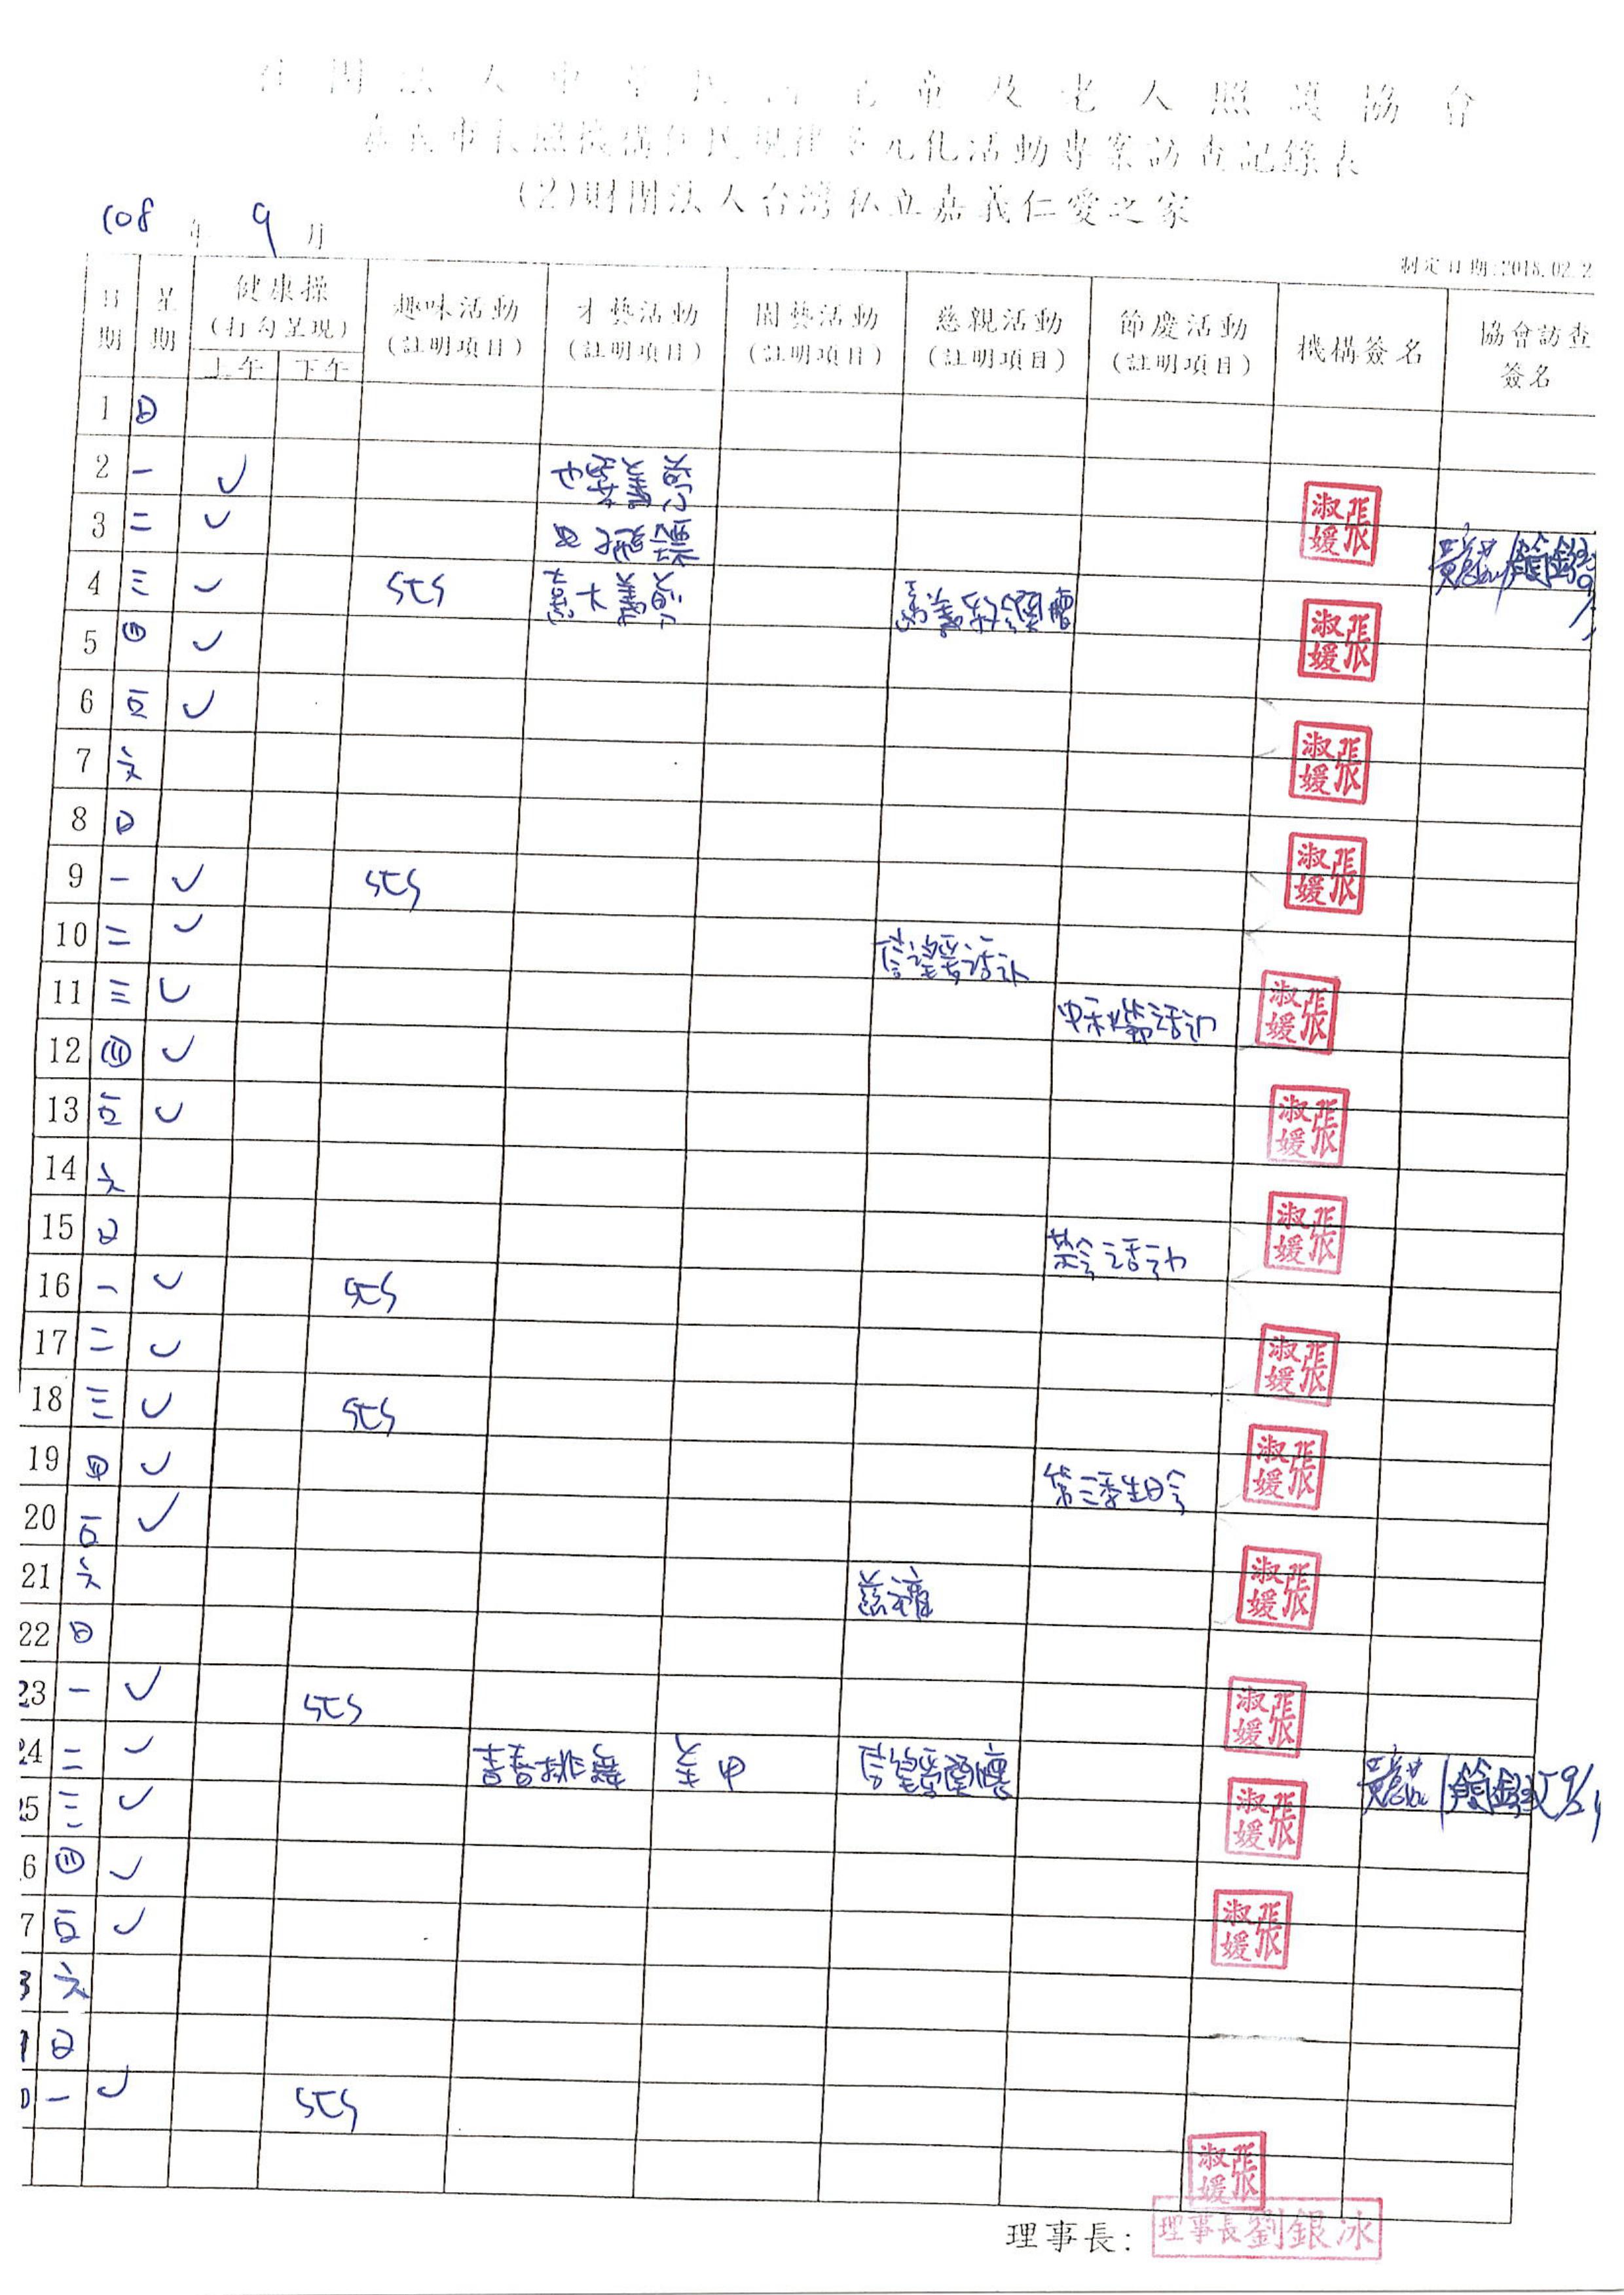 社團法人中華民國兒童及老人照護協會
嘉義市長照機構住民規律多元化活動專案訪查記錄表
(2)財團法人台灣私立嘉義仁愛之家
108 年 9 月
制定日期:2018.02.2
日期 星期 健康操(打勾呈現) 上午 下午 趣味活動(註明項目) 才藝活動(註明項目) 園藝活動(註明項目) 慈親活動(註明項目) 節慶活動(註明項目) 機構簽名 協會訪查簽名
1 日
2 一 ✓ 張淑媛
3 二 ✓ 飛鏢
4 三 ✓ STS 嘉大義剪 張淑媛
5 四 ✓
6 五 ✓ 張淑媛
7 六
8 日 張淑媛
9 一 ✓ STS
10 二 ✓ 信望愛活动
11 三 ✓ 中秋節活动 張淑媛
12 四 ✓
13 五 ✓ 張淑媛
14 六
15 日 活动 張淑媛
16 一 ✓ STS
17 二 ✓ 張淑媛
18 三 ✓ STS
19 四 ✓ 第三季生日会 張淑媛
20 五 ✓
21 六 慈濟 張淑媛
22 日
23 一 ✓ STS 張淑媛
24 二 ✓ 排舞 美甲 信望愛關懷
25 三 ✓ 張淑媛
6 四 ✓
7 五 ✓ 張淑媛
六
日
一 ✓ STS
張淑媛
理事長: 理事長劉銀冰